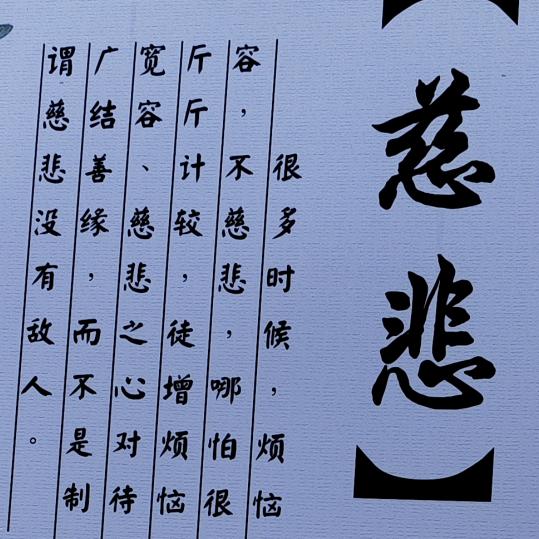 【慈悲】
很多时候，烦恼
容，不慈悲，哪怕很
斤斤计较，徒增烦恼
宽容、慈悲之心对待
广结善缘，而不是制
谓慈悲没有敌人。